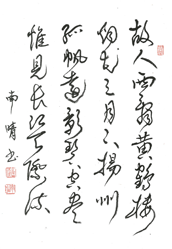 故人西辞黄鹤楼
烟花三月下扬州
孤帆远影碧空尽
惟见长江天际流
南晴书